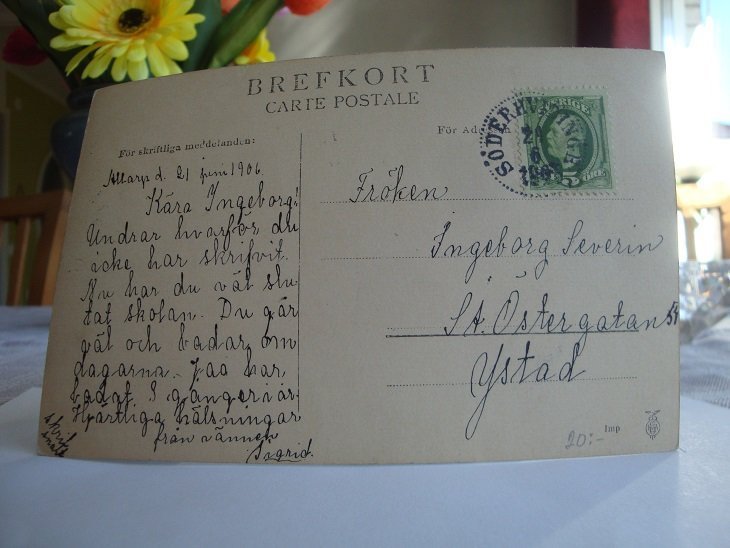 BREFKORT
CARTE POSTALE
För skriftliga meddelanden:
För Ad
SÖDERHVIDINGE
SVERIGE
5 ÖRE
Alltarp d. 21 juni 1906
Kära Ingeborg!
Undrar hvarför du
icke har skrifvit.
Nu har du väl slu-
tat skolan. Du går
väl och badar om
dagarna. Jaa har
badat 3 gånger i år
Hjärtliga hälsningar
från vännen
Sigrid.
skrif
snart
Fröken
Ingeborg Severin
St. Östergatan 54
Ystad
20:-
Imp